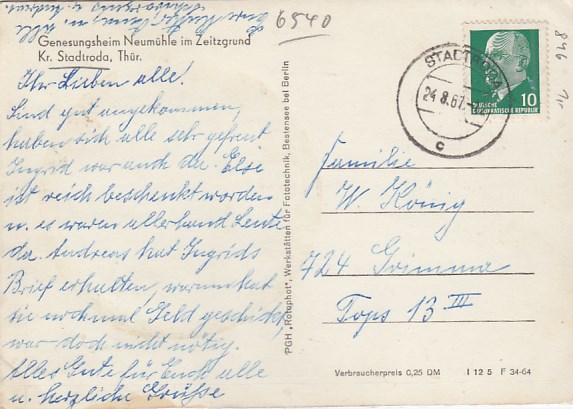 6540
Genesungsheim Neumühle im Zeitzgrund
Kr. Stadtroda, Thür.
Ihr Lieben alle!
Sind gut angekommen,
haben sich alle sehr gefreut
Ingrid war auch da. Else
ist reich beschenkt worden
u. es waren allerhand Leute
da. Andreas hat Ingrids
Brief erhalten, warum hat
sie nochmal Geld geschickt,
war doch nicht nötig.
Alles Gute für Euch alle
u. herzliche Grüsse
PGH „Rotophot", Werkstätten für Fototechnik, Bestensee bei Berlin
STADTRODA
24.8.67
c
10
DEUTSCHE
DEMOKRATISCHE REPUBLIK
846
Familie
W. König
724 Grimma
Tops 13 III
Verbraucherpreis 0,25 DM
I 12 5 F 34-64